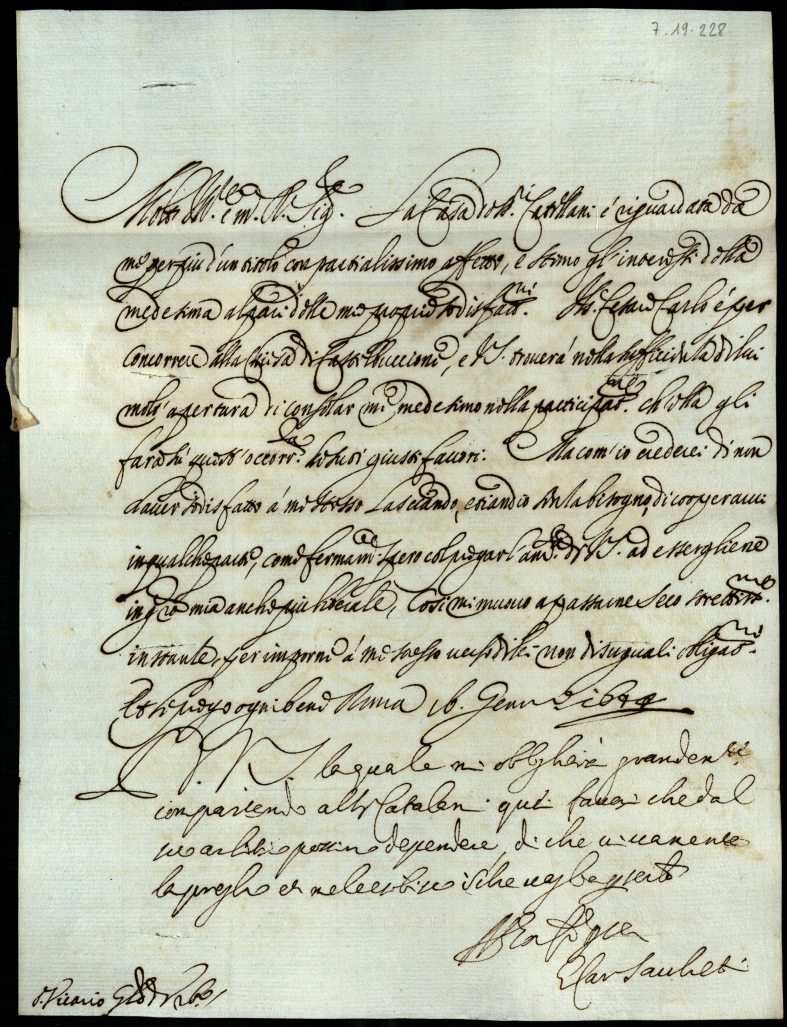 7.19-228
Molto Ill.re e m. R. Sig.re La Casa de SS.ri Catellani é riguardata da
me per piu d'un titolo con partialissimo affetto, e stimo gl'interessi della
medesima al pari delle mie proprie sodisfat.ni Il S. Cesare Carlo é per
concorrere alla Chiesa di Castelluccione, e V.S. trouerá nella sufficienza di lui
molt'apertura di consolar me medesimo nella participat.ne ch'ella gli
fará in quest'occorr.za de suoi giusti fauori. Ma com'io crederei di non
hauer sodisfatto á me stesso lasciando, etiandio senza bisogno di cooperarui
in qualche parte, come ferma.te spero col piegar l'an.o di V.S. ad essergliene
in gr.a mia anche piu liberale, Cosi mi muouo a passarne seco strettiss.me
instanze, per imporre á me stesso verso di lei non disuguali obligat.ni
Et le prego ogni bene Roma 16. Genn.o
V.S. la quale mi obligherá grandem.te
compartendo al S. Catelani quei fauori che dal
suo arbitrio possino dependere, di che viuamente
la prego
Il Car Sacheti
S. Vicario G.le di